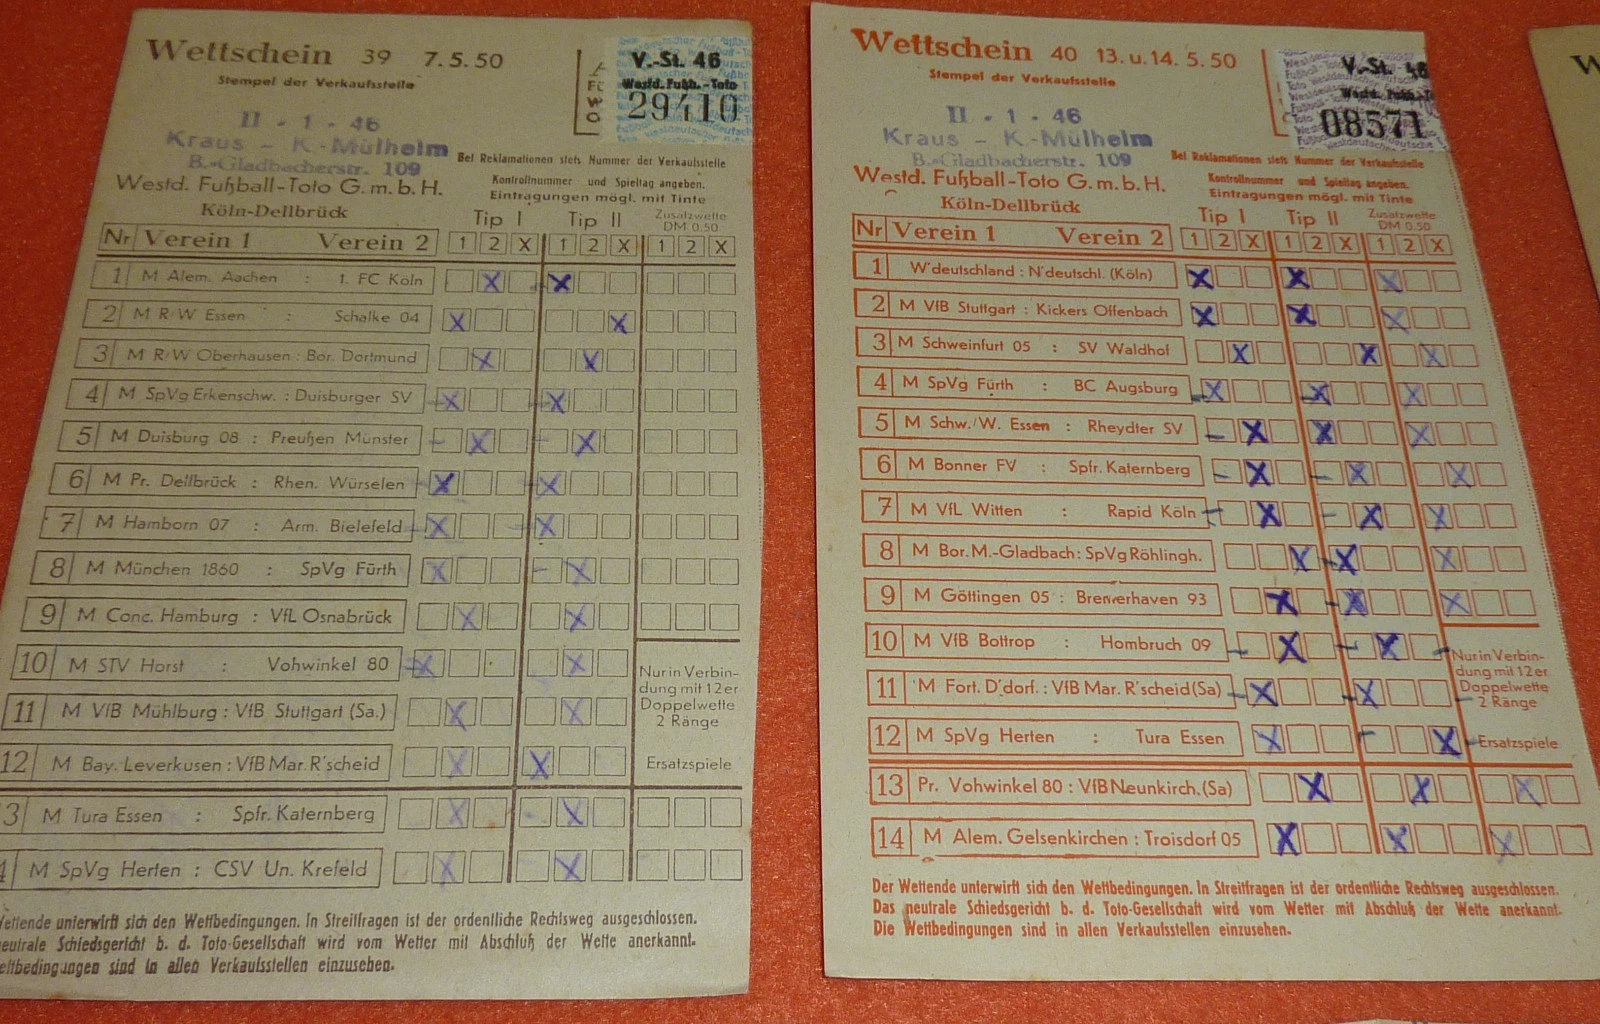 Wettschein 39 7.5.50
Stempel der Verkaufsstelle
V.-St. 46
Westd. Fußb.-Toto
29410
II - 1 - 46
Kraus - K.-Mülheim
B.-Gladbacherstr. 109
Bei Reklamationen stets Nummer der Verkaufsstelle
Kontrollnummer und Spieltag angeben.
Eintragungen mögl. mit Tinte
Westd. Fußball-Toto G.m.b.H.
Köln-Dellbrück
Tip I Tip II Zusatzwette
DM 0.50
Nr Verein 1 Verein 2 1 2 X 1 2 X 1 2 X
1 M Alem. Aachen : 1. FC Köln
2 M R/W Essen : Schalke 04
3 M R/W Oberhausen : Bor. Dortmund
4 M SpVg Erkenschw. : Duisburger SV
5 M Duisburg 08 : Preußen Münster
6 M Pr. Dellbrück : Rhen. Würselen
7 M Hamborn 07 : Arm. Bielefeld
8 M München 1860 : SpVg Fürth
9 M Conc. Hamburg : VfL Osnabrück
10 M STV Horst : Vohwinkel 80
11 M VfB Mühlburg : VfB Stuttgart (Sa.)
12 M Bay. Leverkusen : VfB Mar. R'scheid
Nur in Verbin-
dung mit 12er
Doppelwette
2 Ränge
Ersatzspiele
3 M Tura Essen : Spfr. Katernberg
4 M SpVg Herten : CSV Un. Krefeld
Wettende unterwirft sich den Wettbedingungen. In Streitfragen ist der ordentliche Rechtsweg ausgeschlossen.
neutrale Schiedsgericht b. d. Toto-Gesellschaft wird vom Wetter mit Abschluß der Wette anerkannt.
ettbedingungen sind in allen Verkaufsstellen einzusehen.
Wettschein 40 13. u. 14. 5. 50
Stempel der Verkaufsstelle
V.-St. 46
Westd. Fußb.-Toto
08571
II - 1 - 46
Kraus - K.-Mülheim
B.-Gladbacherstr. 109
Bei Reklamationen stets Nummer der Verkaufsstelle
Kontrollnummer und Spieltag angeben.
Eintragungen mögl. mit Tinte
Westd. Fußball-Toto G.m.b.H.
Köln-Dellbrück
Tip I Tip II Zusatzwette
DM 0.50
Nr Verein 1 Verein 2 1 2 X 1 2 X 1 2 X
1 W'deutschland : N'deutschl. (Köln)
2 M VfB Stuttgart : Kickers Offenbach
3 M Schweinfurt 05 : SV Waldhof
4 M SpVg Fürth : BC Augsburg
5 M Schw./W. Essen : Rheydter SV
6 M Bonner FV : Spfr. Katernberg
7 M VfL Witten : Rapid Köln
8 M Bor. M.-Gladbach : SpVg Röhlingh.
9 M Göttingen 05 : Bremerhaven 93
10 M VfB Bottrop : Hombruch 09
11 M Fort. D'dorf. : VfB Mar. R'scheid (Sa)
12 M SpVg Herten : Tura Essen
Nur in Verbin-
dung mit 12er
Doppelwette
2 Ränge
Ersatzspiele
13 Pr. Vohwinkel 80 : VfB Neunkirch. (Sa)
14 M Alem. Gelsenkirchen : Troisdorf 05
Der Wettende unterwirft sich den Wettbedingungen. In Streitfragen ist der ordentliche Rechtsweg ausgeschlossen.
Das neutrale Schiedsgericht b. d. Toto-Gesellschaft wird vom Wetter mit Abschluß der Wette anerkannt.
Die Wettbedingungen sind in allen Verkaufsstellen einzusehen.